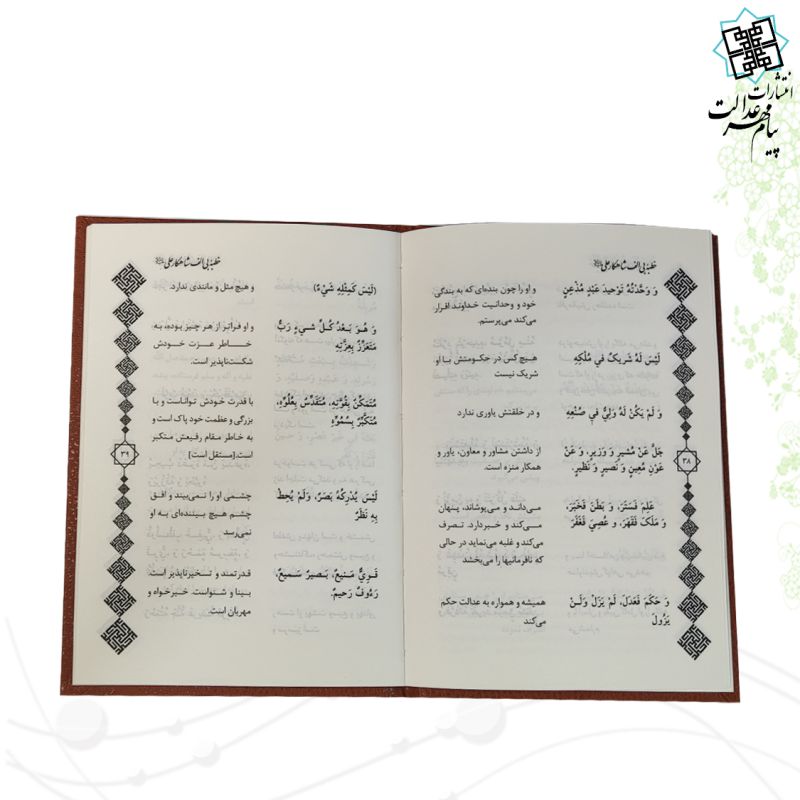 انتشارات
پیام مهر عدالت
خطبهٔ بی الف شاهکار علی
وَ وَحَّدتُهُ تَوْحیدَ عَبْدٍ مُذْعِنٍ
و او را چون بنده‌ای که به بندگی
خود و وحدانیت خداوند اقرار
می‌کند می‌پرستم.
لَیْسَ لَهُ شَریکٌ فی مُلْکِهِ
هیچ کس در حکومتش با او
شریک نیست
وَ لَمْ یَکُنْ لَهُ وَلِیٌّ فی صُنْعِهِ
و در خلقتش یاوری ندارد
جَلَّ عَنْ مُشیرٍ وَ وَزیرٍ، وَ عَنْ
عَوْنِ مُعینٍ وَ نَصیرٍ وَ نَظیرٍ.
از داشتن مشاور و معاون، یاور و
همکار منزه است.
عَلِمَ فَسَتَرَ، وَ بَطَنَ فَخَبَرَ،
وَ مَلَکَ فَقَهَرَ، وَ عُصِیَ فَغَفَرَ
می‌داند و می‌پوشاند، پنهان
می‌کند و خبردارد. تصرف
می‌کند و غلبه می‌نماید در حالی
که نافرمانیها را می‌بخشد
وَ حَکَمَ فَعَدَلَ، لَمْ یَزَلْ وَلَنْ
یَزُولَ
همیشه و همواره به عدالت حکم
می‌کند
۳۸
خطبهٔ بی الف شاهکار علی
(لَیْسَ کَمِثْلِهِ شَیْءٌ)
و هیچ مثل و مانندی ندارد.
وَ هُوَ بَعْدَ کُلِّ شَیءٍ رَبٌّ
مُتَعَزِّزٌ بِعِزَّتِهِ
و او فراتر از هر چیز بوده، به
خاطر عزت خودش
شکست‌ناپذیر است.
مُتَمَکِّنٌ بِقُوَّتِهِ، مُتَقَدِّسٌ بِعُلُوِّهِ،
مُتَکَبِّرٌ بِسُمُوِّهِ
با قدرت خودش تواناست و با
بزرگی و عظمت خود پاک است و
به خاطر مقام رفیعش متکبر
است.[مستقل است]
لَیْسَ یُدْرِکُهُ بَصَرٌ، وَلَمْ یُحِطْ
بِهِ نَظَرٌ
چشمی او را نمی‌بیند و افق
چشم هیچ بیننده‌ای به او
نمی‌رسد
قَوِیٌّ مَنیعٌ، بَصیرٌ سَمیعٌ،
رَءُوفٌ رَحیمٌ.
قدرتمند و تسخیرناپذیر است.
بینا و شنواست. خیرخواه و
مهربان است.
۳۹